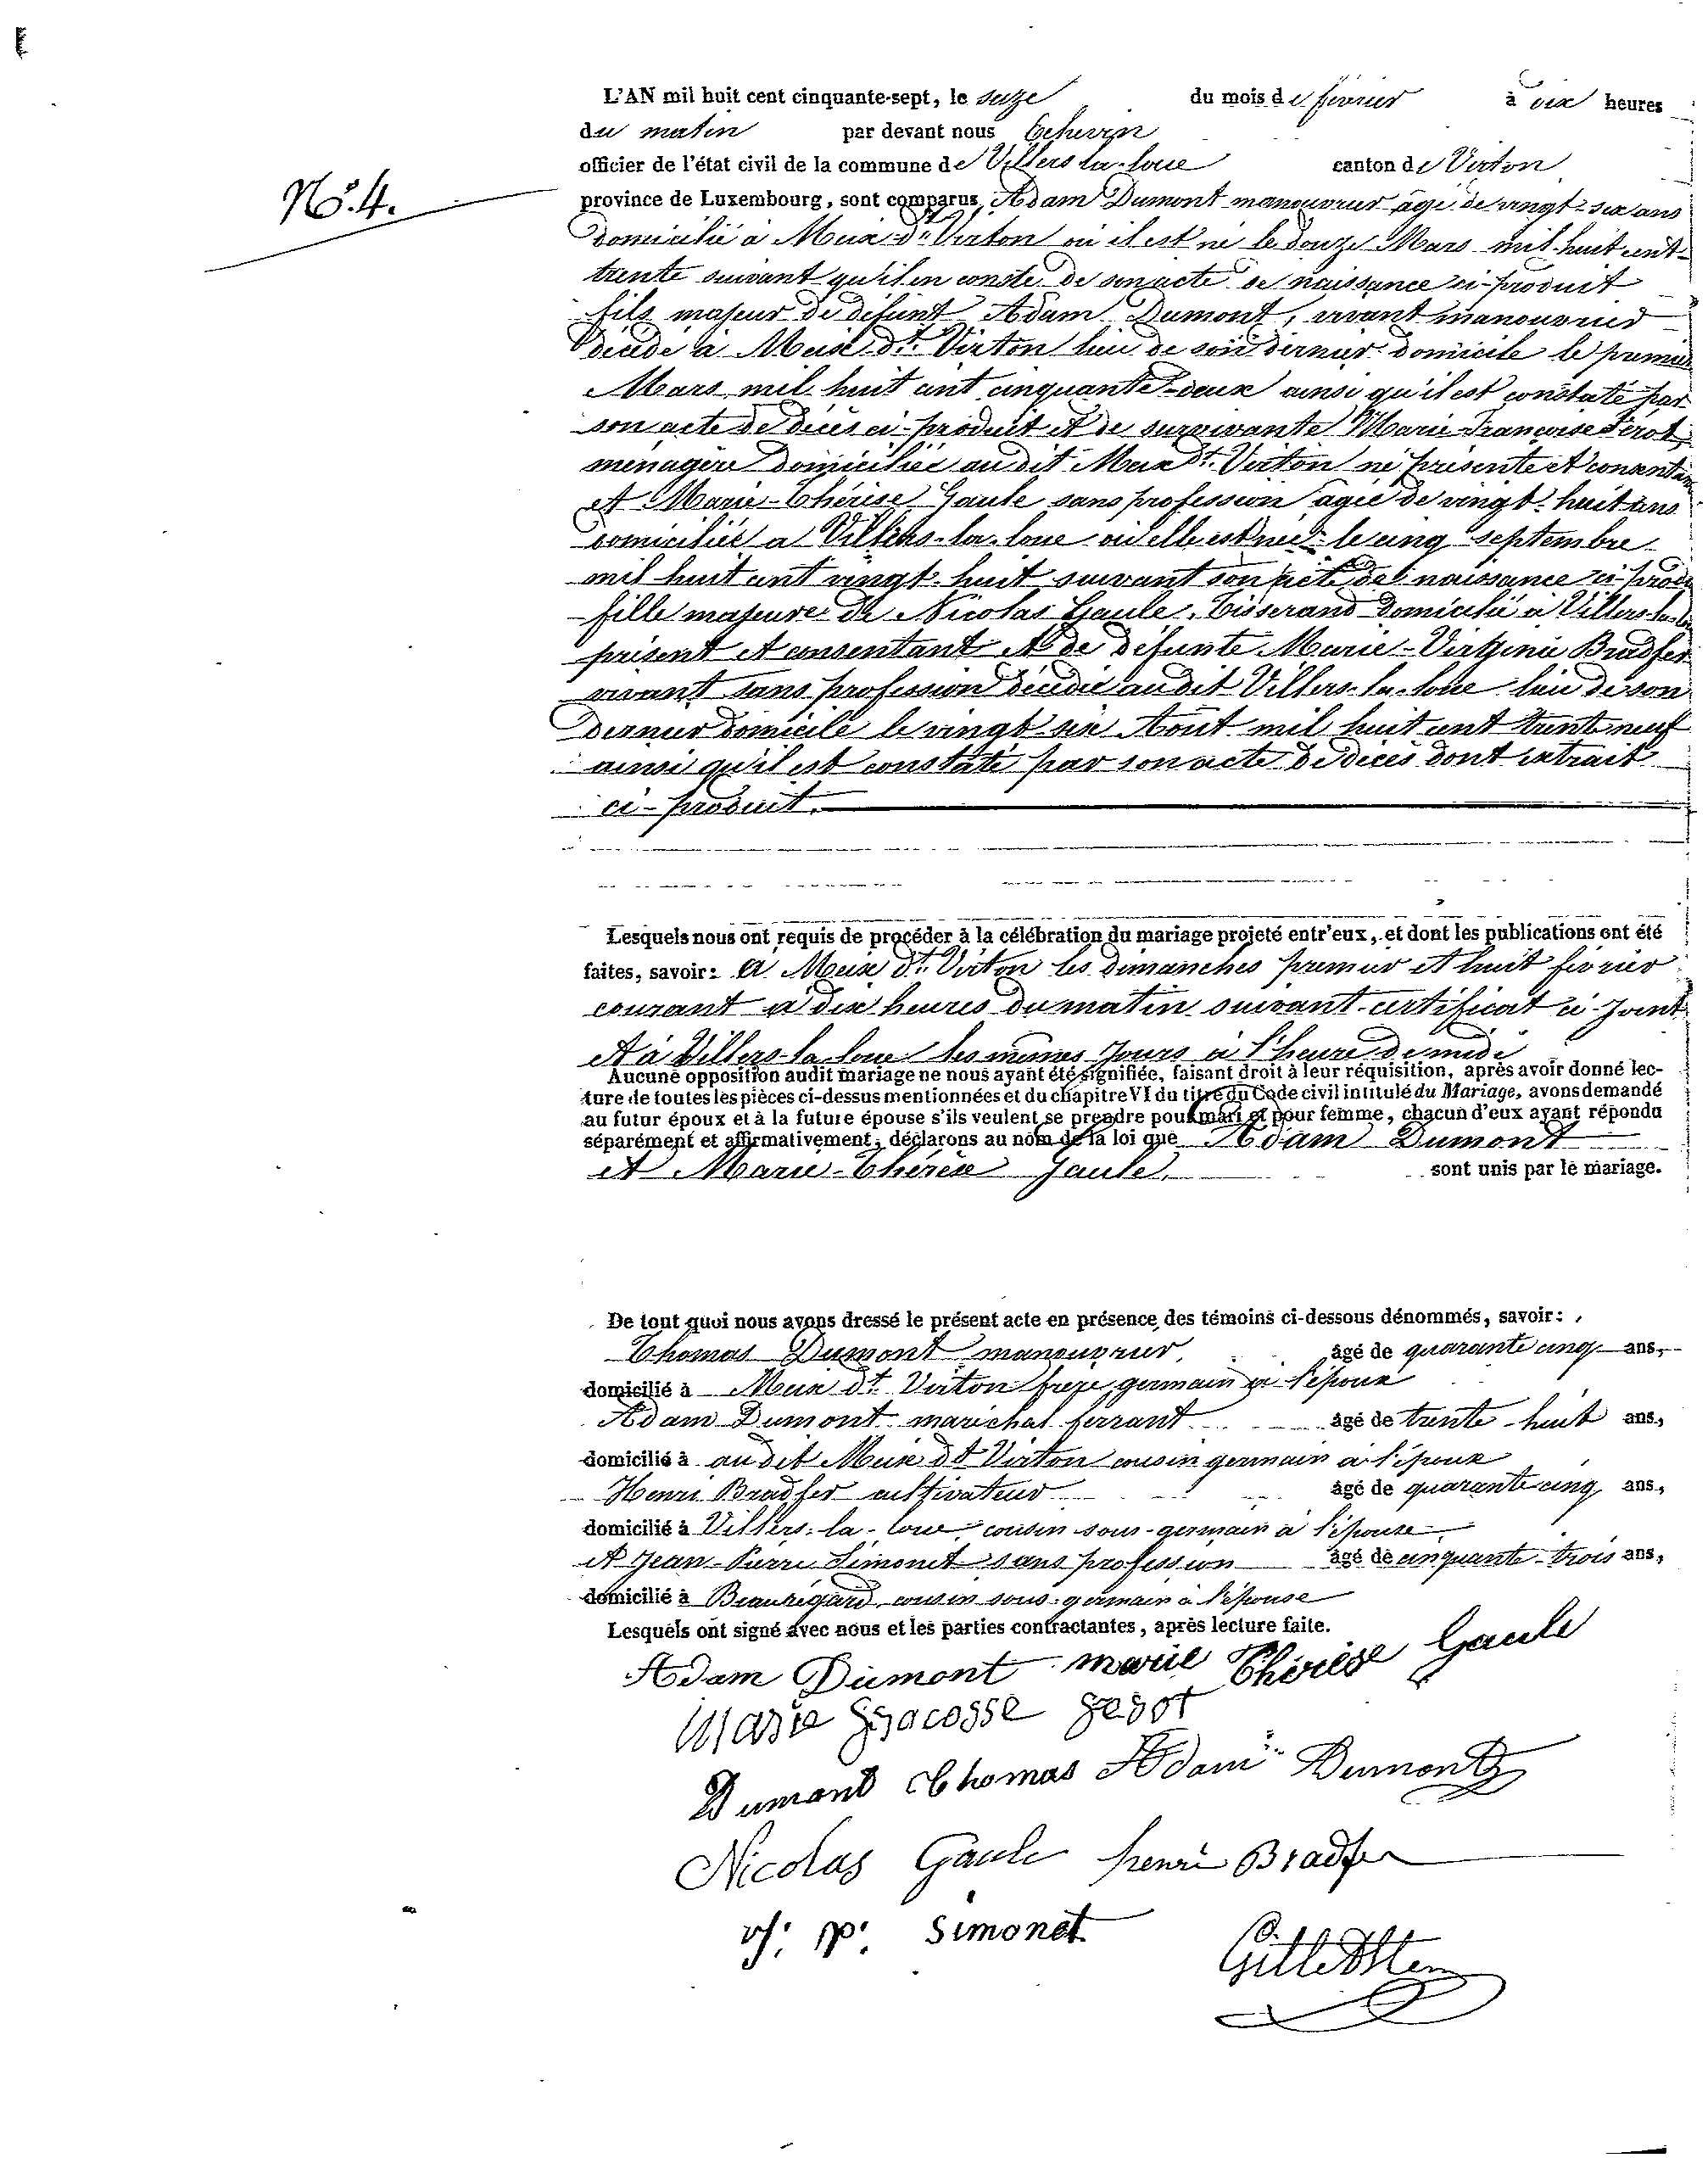 L'AN mil huit cent cinquante-sept, le seize du mois de février à dix heures
du matin par devant nous Echevin
officier de l'état civil de la commune de Villers-la-loue canton de Virton
N° 4.
province de Luxembourg, sont comparus Adam Dumont manouvrier âgé de vingt-six ans
domicilié à Meix dt Virton où il est né le douze Mars mil huit cent
trente suivant qu'il en conste de son acte de naissance ci-produit
fils majeur de défunt Adam Dumont, vivant manouvrier
décédé à Meix dt Virton lieu de son dernier domicile le premier
Mars mil huit cent cinquante-deux ainsi qu'il est constaté par
son acte de décès ci-produit et de survivante Marie Françoise
ménagère domiciliée au dit Meix dt Virton présente et consentan
et Marie-Thérèse Gaule sans profession âgée de vingt-huit ans
domiciliée à Villers-la-loue où elle est née le cinq septembre
mil huit cent vingt-huit suivant son acte de naissance ci-prod
fille majeure de Nicolas Gaule, Tisserand domicilié à Villers-la-lou
présent et consentant et de défunte Marie-Virginie Bradfer
vivant sans profession décédée audit Villers-la-loue lieu de son
dernier domicile le vingt-six Août mil huit cent trente neuf
ainsi qu'il est constaté par son acte de décès dont extrait
ci-produit.
Lesquels nous ont requis de procéder à la célébration du mariage projeté entr'eux, et dont les publications ont été
faites, savoir: A Meix dt Virton les dimanches premier et huit février
courant à dix heures du matin suivant certificat ci-joint
et à Villers-la-loue les mêmes jours à l'heure de midi
Aucune opposition audit mariage ne nous ayant été signifiée, faisant droit à leur réquisition, après avoir donné lec-
ture de toutes les pièces ci-dessus mentionnées et du chapitre VI du titre du Code civil intitulé du Mariage, avons demandé
au futur époux et à la future épouse s'ils veulent se prendre pour mari et pour femme, chacun d'eux ayant répondu
séparément et affirmativement, déclarons au nom de la loi que Adam Dumont
et Marie-Thérèse Gaule, sont unis par le mariage.
De tout quoi nous avons dressé le présent acte en présence des témoins ci-dessous dénommés, savoir:
Thomas Dumont manouvrier âgé de quarante cinq ans,
domicilié à Meix dt Virton frère germain à l'époux
Adam Dumont maréchal ferrant âgé de trente-huit ans,
domicilié à au dit Meix dt Virton cousin germain à l'époux
Henri Bradfer cultivateur âgé de quarante-cinq ans,
domicilié à Villers-la-loue cousin sous-germain à l'épouse
et Jean-Pierre Simonet sans profession âgé de cinquante-trois ans,
domicilié à Beauregard, cousin sous-germain à l'épouse
Lesquels ont signé avec nous et les parties contractantes, après lecture faite.
Adam Dumont marie Thérèse Gaule
Marie
Dumont Thomas Adam Dumont
Nicolas Gaule henri Bradfer
j: p: Simonet